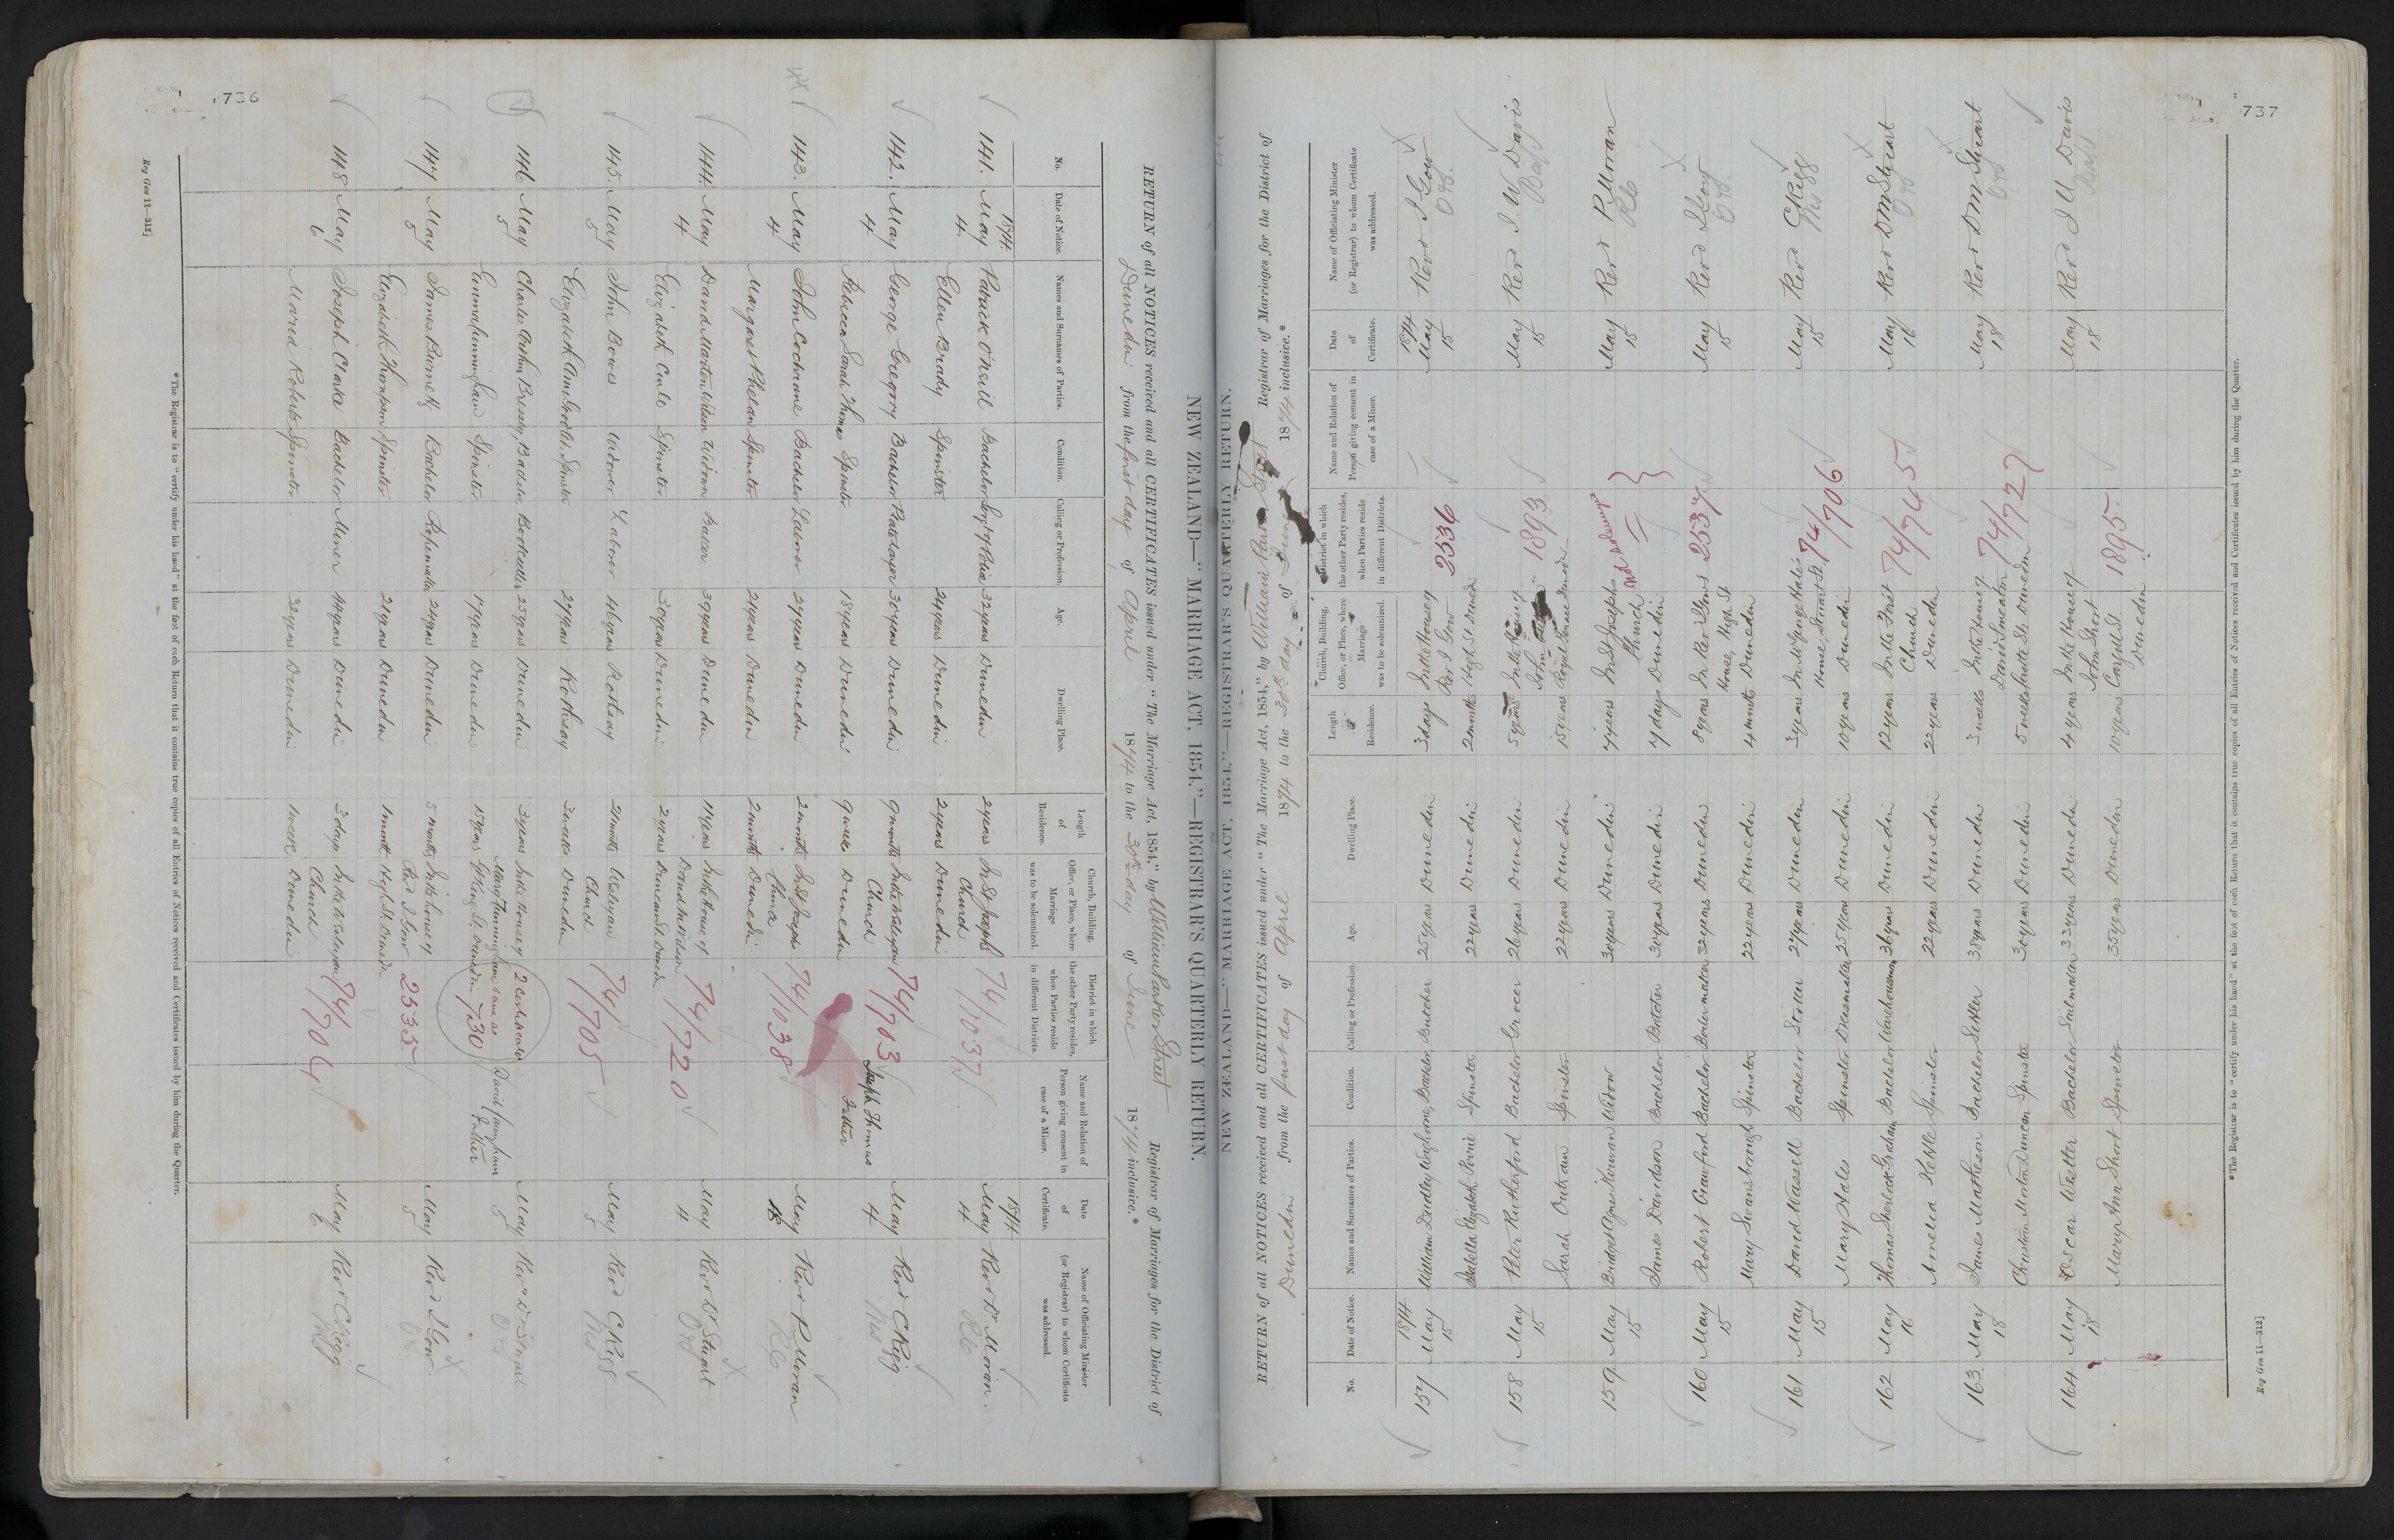 736
NEW ZEALAND—"MARRIAGE ACT, 1854."—REGISTRAR'S QUARTERLY RETURN.
RETURN of all NOTICES received and all CERTIFICATES issued under "The Marriage Act, 1854," by William Parker Street Registrar of Marriages for the District of
Dunedin from the first day of April 1874 to the 30th day of June 1874 inclusive.*
No. Date of Notice. Names and Surnames of Parties. Condition. Calling or Profession. Age. Dwelling Place. Length of Residence. Church, Building, Office, or Place, where Marriage was to be solemnized. District in which the other Party resides, when Parties reside in different Districts. Name and Relation of Person giving consent in case of a Minor. Date of Certificate. Name of Officiating Minister (or Registrar) to whom Certificate was addressed.
1874 1874
141. May 4 Patrick O'Neil Bachelor Sergt of Police 32 years Dunedin 2 years In St Josephs Church 74/1037 May 4 Revd Dr Moran. RC
Ellen Brady Spinster 24 years Dunedin 2 years Dunedin
142. May 4 George Gregory Bachelor Platelayer 30 years Dunedin 9 months In the Wesleyan Church 74/703 Joseph Thomas Father May 4 Revd C Rigg Wes
Rebecca Sarah Thomas Spinster 18 years Dunedin 9 weeks Dunedin
143. May 4 John Cochrane Bachelor Labourer 27 years Dunedin 2 months In St Josephs Church 74/1038 May Revd P Moran RC
Margaret Phelan Spinster 24 years Dunedin 2 months Dunedin
144. May 4 David Marton Wilson Widower Baker 39 years Dunedin 11 years In the House of David M Wilson 74/720 May 4 Revd Dr Stuart
Elizabeth Spinster 30 years Dunedin 2 years Duncan St. Dunedin
145. May 5 John Bowes Widower Laborer 46 years Rothsay 2 months Wesleyan Church 74/705 May 5 Revd C Rigg Wes
Elizabeth Ann Spinster 27 years Rothsay 3 weeks Dunedin
146. May 5 Charles Arthur Bressey Bachelor Bookseller 25 years Dunedin 3 years In the House of Margt Cunningham 2 certificates same as 730 David Cunningham Father May 5 Revd Dr Stuart
Emma Cunningham Spinster 17 years Dunedin 15 years Gt King St. Dunedin
147. May 5 James Burnett Bachelor Ropemaker 24 years Dunedin 5 months In the house of Revd J Gow 2535 May 5 Revd J Gow
Elizabeth Thompson Spinster 21 years Dunedin 1 month High St. Dunedin
148. May 6 Joseph Clarke Bachelor Miner 44 years Dunedin 3 days In the Wesleyan Church 74/704 May 6 Revd C Rigg Wes
Maria Roberts Spinster 32 years Dunedin 1 week Dunedin
*The Registrar is to "certify under his hand" at the foot of each Return that it contains true copies of all Entries of Notices received and Certificates issued by him during the Quarter.
Reg Gen 11—312]
737
NEW ZEALAND—"MARRIAGE ACT, 1854."—REGISTRAR'S QUARTERLY RETURN.
RETURN of all NOTICES received and all CERTIFICATES issued under "The Marriage Act, 1854," by William Parker Street Registrar of Marriages for the District of
Dunedin from the first day of April 1874 to the 30th day of June 1874 inclusive.*
No. Date of Notice. Names and Surnames of Parties. Condition. Calling or Profession. Age. Dwelling Place. Length of Residence. Church, Building, Office, or Place, where Marriage was to be solemnized. District in which the other Party resides, when Parties reside in different Districts. Name and Relation of Person giving consent in case of a Minor. Date of Certificate. Name of Officiating Minister (or Registrar) to whom Certificate was addressed.
1874 1874
157 May 15 William Dudley Waghorne Bachelor Butcher 25 years Dunedin 3 days In the House of Rev J Gow 2536 May 15 Revd J Gow
Isabella Elizabeth Pirrie Spinster 22 years Dunedin 2 months High St Dunedin
158 May 15 Peter Rutherford Bachelor Grocer 26 years Dunedin 5 years In the House of John 1893 May 15 Revd J. U. Davis Bapt
Sarah Outram Spinster 22 years Dunedin 15 years Royal Terrace Dunedin
159 May 15 Bridget Agnes Kirwan Widow 30 years Dunedin 7 years In St Josephs Church May 15 Revd P Moran RC
James Davidson Bachelor Butcher 30 years Dunedin 7 days Dunedin
160 May 15 Robert Crawford Bachelor Boilermaker 32 years Dunedin 8 years In Rev Gows House, High St 2537 May 15 Revd J Gow
Mary Swansborough Spinster 22 years Dunedin 4 months Dunedin
161 May 15 David Wassell Bachelor Storeman 27 years Dunedin 3 years In Hales House, Stuart St. 74/706 May 15 Revd C Rigg Ws
Mary Hales Spinster Dressmaker 25 years Dunedin 10 years Dunedin
162 May 16 Thomas Sherlock Graham Bachelor Warehouseman 36 years Dunedin 12 years In the First Church 74/745 May 16 Revd D M Stuart
Amelia Spinster 22 years Dunedin 22 years Dunedin
163. May 18 James Matheson Bachelor Settler 35 years Dunedin 3 weeks In the House of David Smeaton 74/727 May 18 Revd D M Stuart
Christina Morton Duncan Spinster 30 years Dunedin 5 weeks St. Dunedin
164 May 18 Oscar Wetter Bachelor Sailmaker 33 years Dunedin 4 years In the House of John Short 1895. May 18 Revd J U Davis Bapt
Mary Ann Short Spinster 35 years Dunedin 10 years Cargill St. Dunedin
*The Registrar is to "certify under his hand" at the foot of each Return that it contains true copies of all Entries of Notices received and Certificates issued by him during the Quarter.
Reg Gen 11—312]